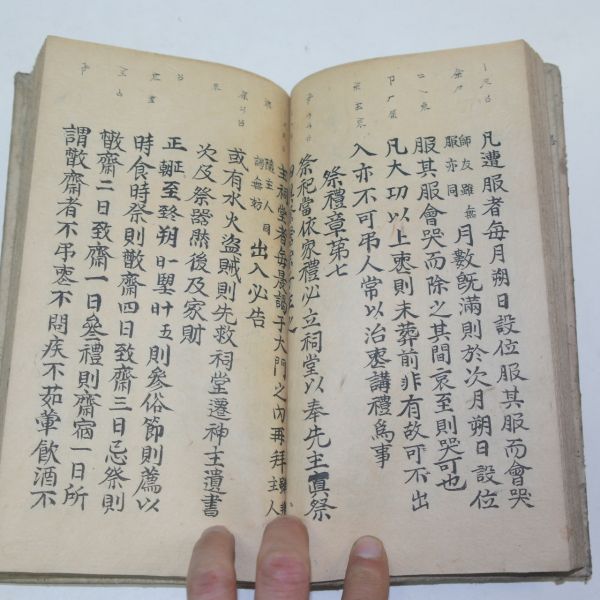 凡遭服者每月朔日設位服其服而會哭
師友雖無服亦同月數旣滿則於次月朔日設位
服其服會哭而除之其間哀至則哭可也
凡大功以上喪則未葬前非有故可不出
入亦不可弔人常以治喪講禮爲事
祭禮章第七
祭祀當依家禮必立祠堂以奉先主眞祭
主祠堂者每晨謁于大門之內再拜主人
隨主人同謁無妨出入必告
或有水火盜賊則先救祠堂遷神主遺書
次及祭器然後及家財
正正朝至冬至朔一日望十五則參俗節則薦以
時食時祭則散齋四日致齋三日忌祭則
散齋二日致齋一日參禮則齋宿一日所
謂散齋者不弔喪不問疾不茹葷飮酒不